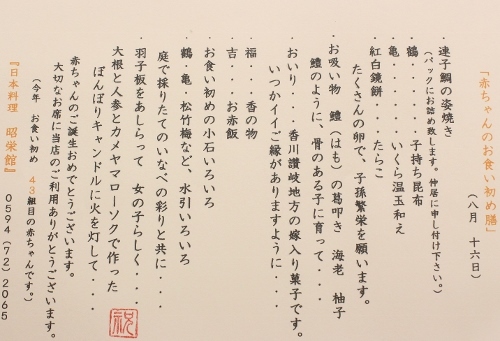 「赤ちゃんのお食い初め膳」
（八月　十六日）
・連子鯛の姿焼き
（パックにお詰め致します。仲居に申し付け下さい。）
・鶴・・・・・・・子持ち昆布
・亀・・・・・・・いくら温玉和え
・紅白鏡餅・・・・・たらこ
たくさんの卵で、子孫繁栄を願います。
・お吸い物　鱧（はも）の葛叩き　海老　柚子
鱧のように、骨のある子に育って・・・・
・おいり・・・香川讃岐地方の嫁入り菓子です。
いつかイイご縁がありますように・・・・
・福・・・香の物
・吉・・・お赤飯
・お食い初めの小石いろいろ
・鶴・亀・松竹梅など、水引いろいろ
庭で採りたてのいなべの彩りと共に・・・・
・羽子板をあしらって　女の子らしく・・・・
・大根と人参とカメヤマローソクで作った
ぼんぼりキャンドルに火を灯して・・・・
祝
赤ちゃんのご誕生おめでとうございます。
大切なお席に当店のご利用ありがとうございます。
（今年　お食い初め　43組目の赤ちゃんです。）
『日本料理　昭栄館』　0594（72）2065